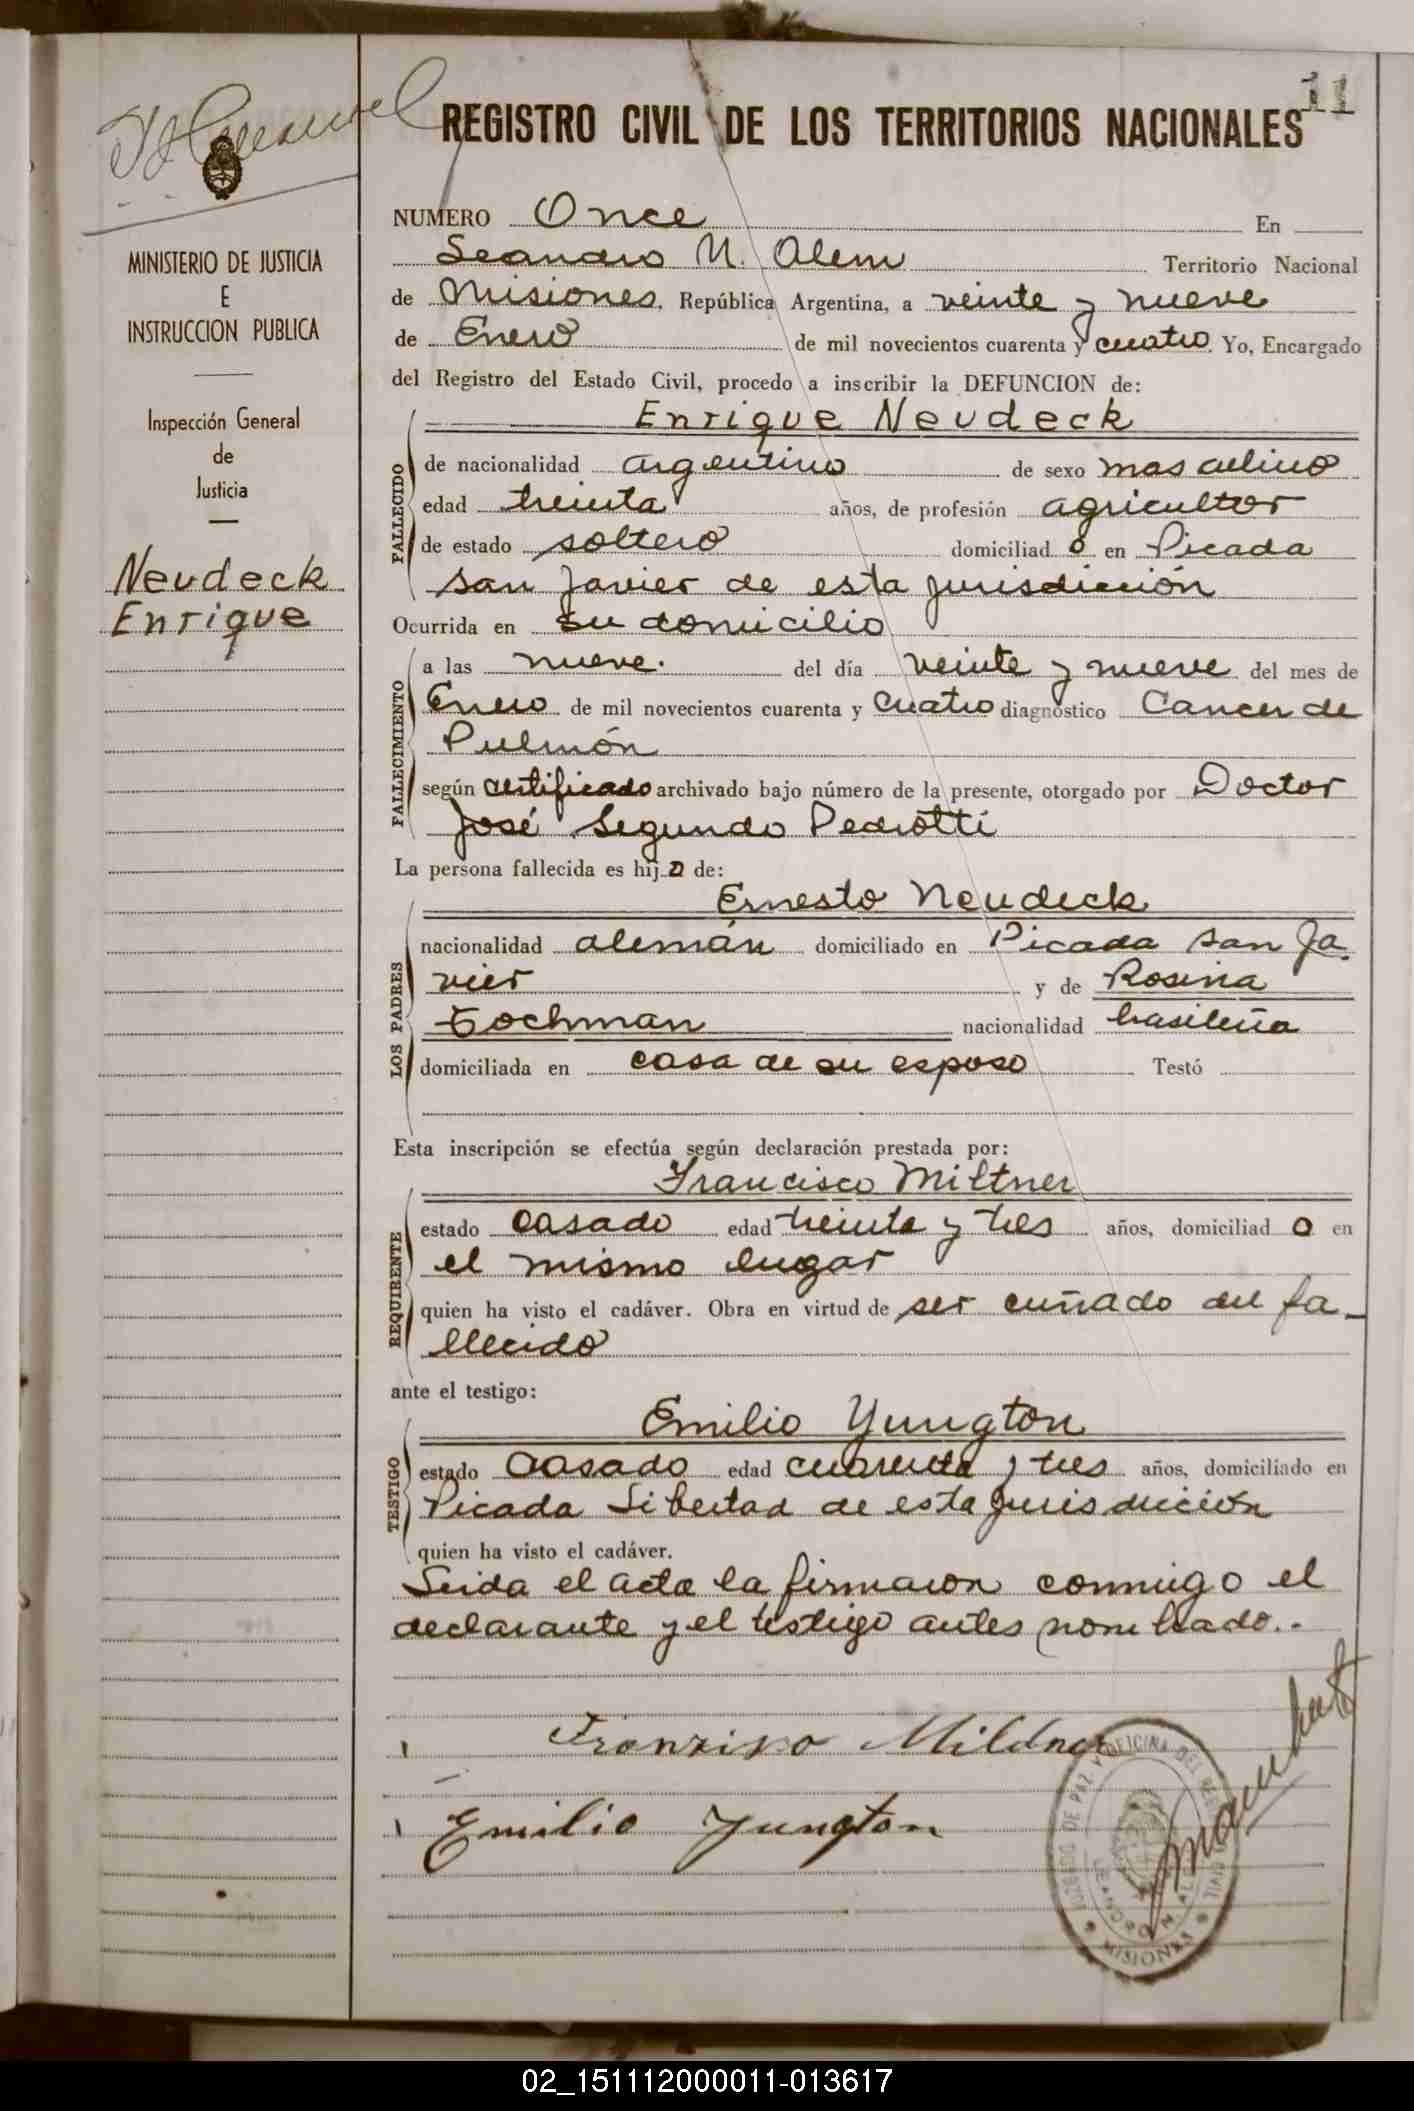 11
REGISTRO CIVIL DE LOS TERRITORIOS NACIONALES
MINISTERIO DE JUSTICIA
E
INSTRUCCION PUBLICA
Inspección General
de
Justicia
Neudeck
Enrique
NUMERO Once En
Leandro N. Alem Territorio Nacional
de Misiones, República Argentina, a veinte y nueve
de Enero de mil novecientos cuarenta y cuatro. Yo, Encargado
del Registro del Estado Civil, procedo a inscribir la DEFUNCION de:
Enrique Neudeck
FALLECIDO
de nacionalidad argentino de sexo masculino
edad treinta años, de profesión agricultor
de estado soltero domiciliado en Picada
san Javier de esta jurisdicción
Ocurrida en su domicilio
FALLECIMIENTO
a las nueve. del día veinte y nueve del mes de
Enero de mil novecientos cuarenta y cuatro diagnóstico Cancer de
Pulmón
según certificado archivado bajo número de la presente, otorgado por Doctor
José Segundo Pedrotti
La persona fallecida es hijo de:
LOS PADRES
Ernesto Neudeck
nacionalidad alemán domiciliado en Picada san Ja-
vier y de Rosina
Tochman nacionalidad brasileña
domiciliada en casa de su esposo Testó
Esta inscripción se efectúa según declaración prestada por:
REQUIRENTE
Francisco Miltner
estado casado edad treinta y tres años, domiciliado en
el mismo lugar
quien ha visto el cadáver. Obra en virtud de ser cuñado del fa-
llecido
ante el testigo:
TESTIGO
Emilio Yungton
estado casado edad cuarenta y tres años, domiciliado en
Picada Libertad de esta jurisdicción
quien ha visto el cadáver.
Leida el acta la firmaron conmigo el
declarante y el testigo antes nombrado..
Franzisko Mildner
Emilio Yungton
JUZGADO DE PAZ Y OFICINA DEL REG. CIVIL
LEANDRO N. ALEM
MISIONES
02_151112000011-013617